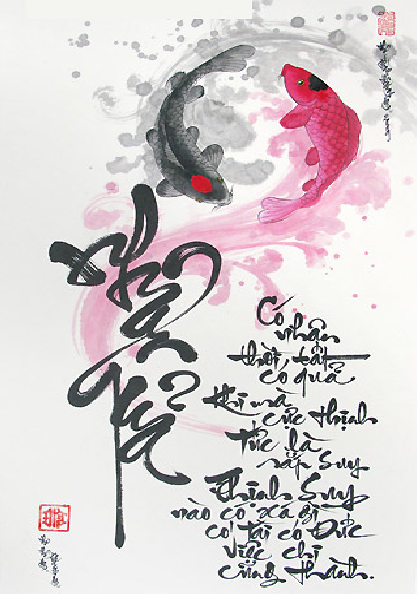 Nhân
Quả
Có
nhân
thời, tất
có quả
Khi mà
cực thịnh
Tức là
sắp Suy
Thịnh Suy
nào có xá gì
có Tài có Đức
việc chi
cũng thành.